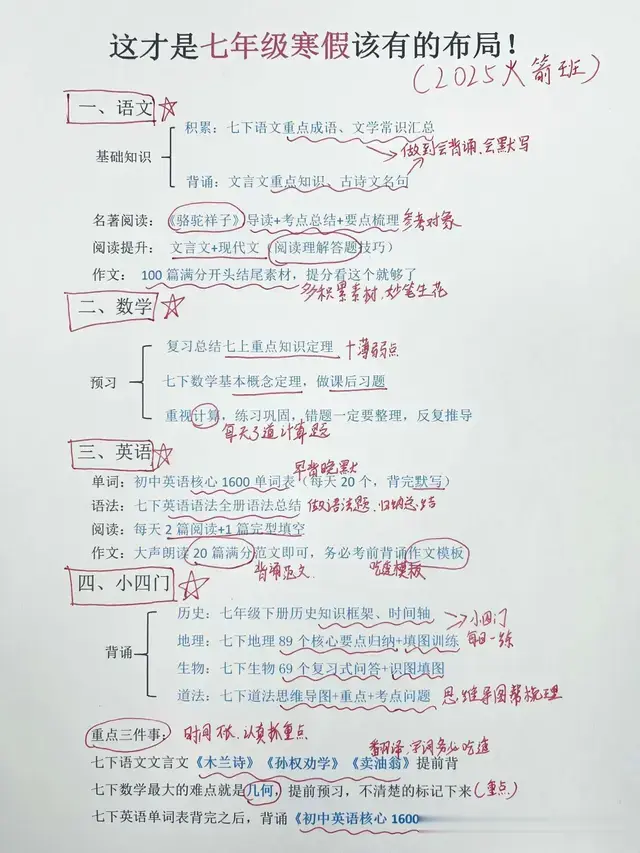 这才是七年级寒假该有的布局！
（2025火箭班）
一、语文☆
积累：七下语文重点成语、文学常识汇总
基础知识
做到会背诵、会默写
背诵：文言文重点知识、古诗文名句
名著阅读：《骆驼祥子》导读+考点总结+要点梳理 参考对象
阅读提升：文言文+现代文（阅读理解答题技巧）
作文：100篇满分开头结尾素材，提分看这个就够了
多积累素材，妙笔生花
二、数学☆
复习总结七上重点知识定理 +薄弱点
预习
七下数学基本概念定理，做课后习题
重视计算，练习巩固，错题一定要整理，反复推导
每天3道计算题
三、英语☆
早背晚默
单词：初中英语核心1600单词表（每天20个，背完默写）
语法：七下英语语法全册语法总结 做语法题、归纳总结
阅读：每天2篇阅读+1篇完型填空
作文：大声朗读20篇满分范文即可，务必考前背诵作文模板
背诵范文 吃透模板
四、小四门☆
历史：七年级下册历史知识框架、时间轴
小四门
地理：七下地理89个核心要点归纳+填图训练 每日一练
背诵
生物：七下生物69个复习式问答+识图填图
道法：七下道法思维导图+重点+考点问题 思维导图帮梳理
重点三件事： 时间不长、认真抓重点
翻译、字词务必吃透
七下语文文言文《木兰诗》《孙权劝学》《卖油翁》提前背
七下数学最大的难点就是几何，提前预习，不清楚的标记下来（重点）
七下英语单词表背完之后，背诵《初中英语核心1600